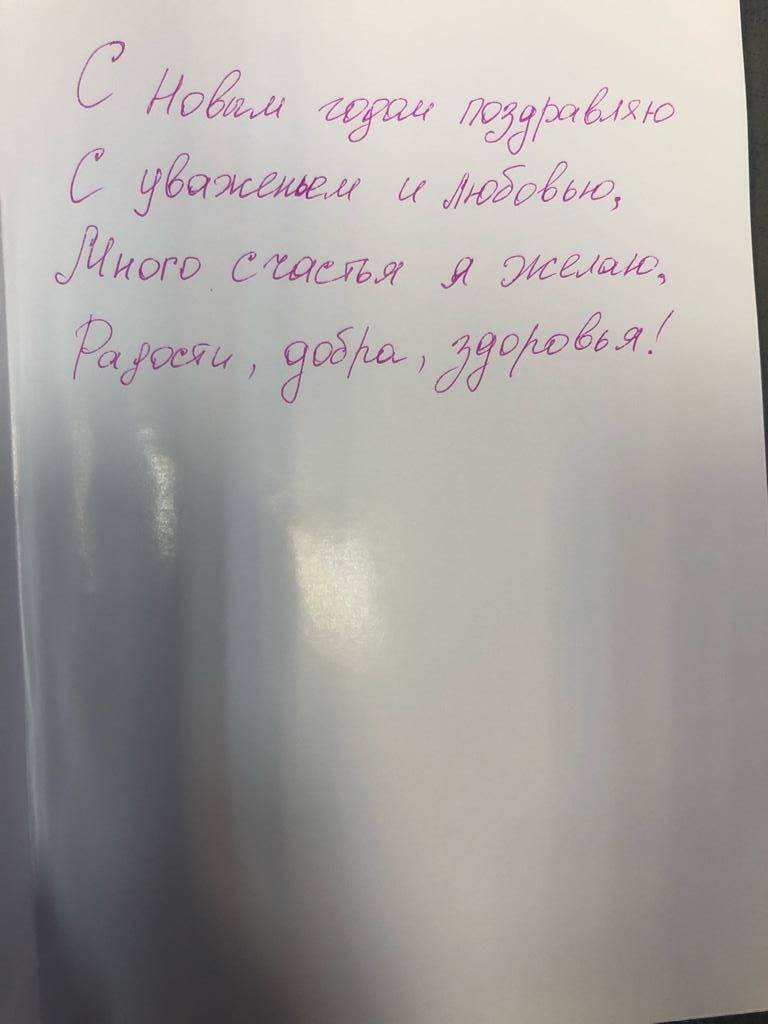 С Новым годом поздравляю
С уваженьем и любовью,
Много счастья я желаю,
Радости, добра, здоровья!